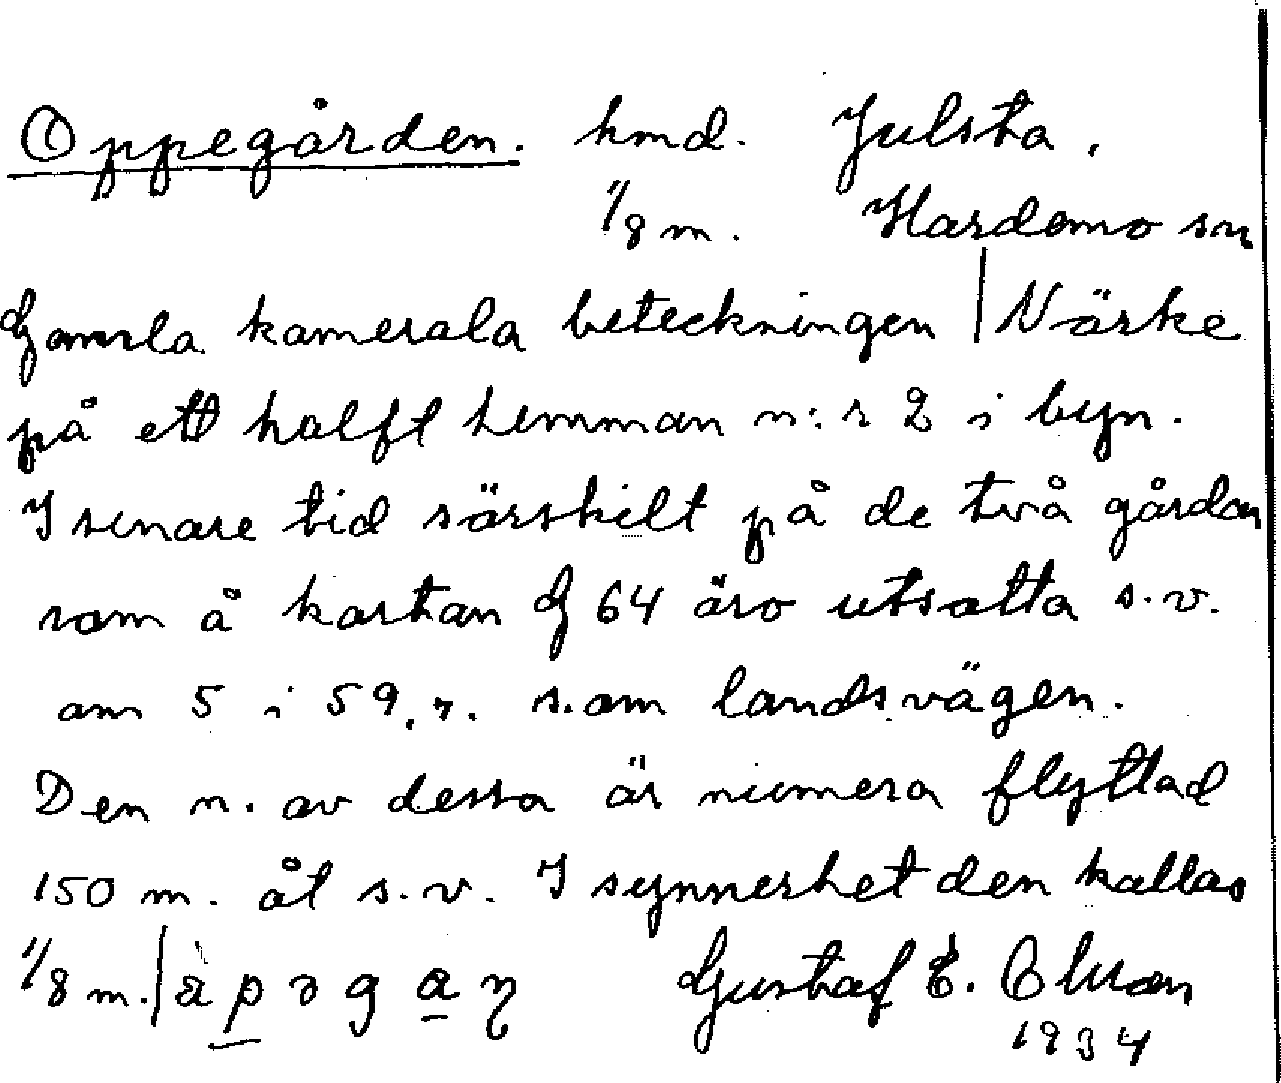 Oppegården. hmd. Julsta.
1/8 m. Hardemo sn
Gamla kamerala beteckningen | Närke
på ett halft hemman n:r 2 i byn.
I senare tid särskilt på de två gårdar
som å kartan G 64 äro utsatta s.v.
om 5 i 59,7. s.om landsvägen.
Den n. av dessa är numera flyttad
150 m. åt s.v. I synnerhet den kallas
1/8 m. Gustaf E.
1934